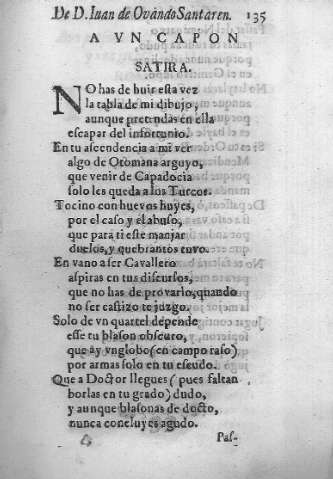 De D. Iuan de Ovándo Santaren. 135
A VN CAPON
SATIRA.
NO has de huir esta vez
la tabla de mi dibujo,
aunque pretendas en ella
escapar del infortunio.
En tu ascendencia a mi ver
algo de Otomana arguyo,
que venir de Capadocia
solo les queda a los Turcos.
Tocino con huevos huyes,
por el caso y el abuso,
que para ti este manjar
duelos, y quebrantos tuvo.
En vano a ser Cavallero
aspiras en tus discursos,
que no has de provarlo, quando
no ser castizo te juzgo.
Solo de vn quartel depende
esse tu blason obscuro,
que ay vn globo (en campo raso)
por armas solo en tu escudo.
Que a Doctor llegues (pues faltan
borlas en tu grado) dudo,
y aunque blasonas de docto,
nunca concluyes agudo.
Pas-